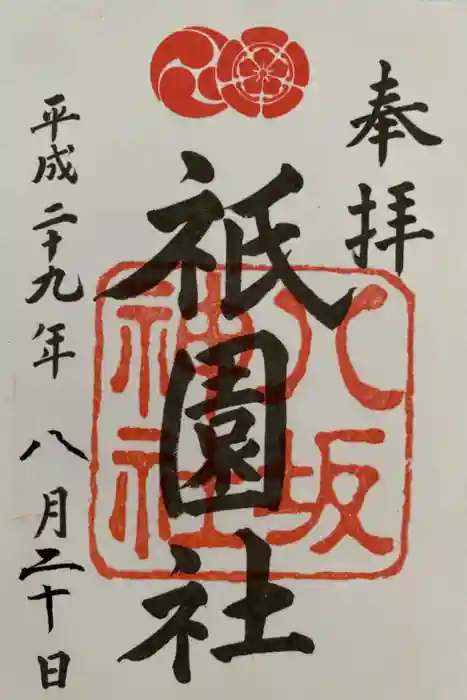 奉拝
祇園社
八坂
神社
平成二十九年 八月二十日